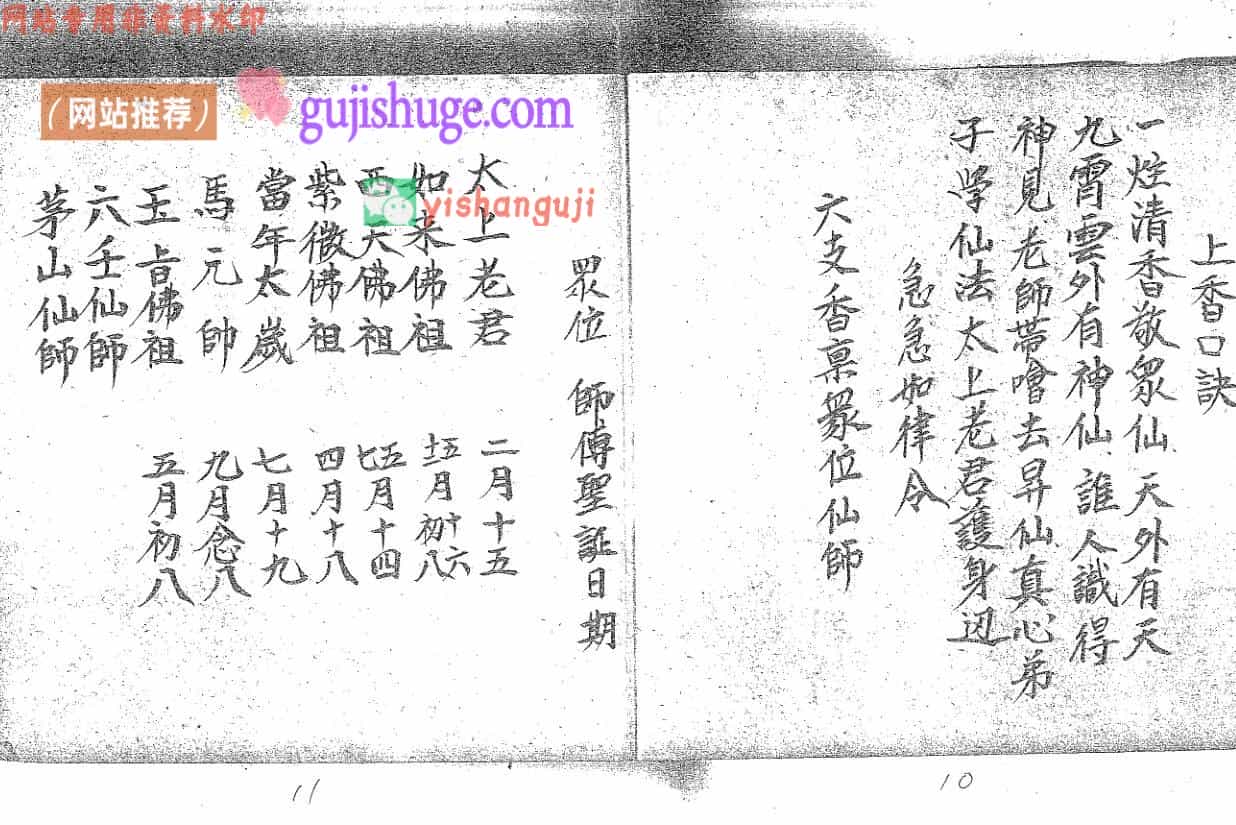 网站专用非资料水印
(网站推荐)
gujishuge.com
yishanguji
上香口訣
一炷清香敬衆仙天外有天
九霄雲外有神仙誰人識得
神見老師帶噲去昇仙真心弟
子学仙法太上老君護身边
急急如律令
六支香稟衆位仙師
10
眾位 師傅聖証日期
太上老君 二月十五
如来佛祖 十五月初八 十六
西天佛祖 五月十四 七
紫微佛祖 四月十八
當年太歲 七月十九
馬元帥 九月念八
玉旨佛祖 五月初八
六壬仙師
茅山仙師
11